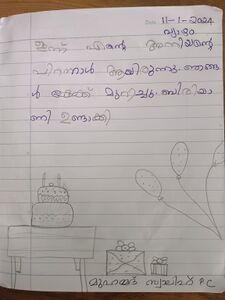 Date 11-1-2024
വ്യാഴം
ഇന്ന് എന്റെ അനിയന്റെ
പിറന്നാൾ ആയിരുന്നു. ഞങ്ങ
ൾ കേക്ക് മുറിച്ചു. ബിരിയാ
ണി ഉണ്ടാക്കി
മുഹമ്മദ് സ്വാലിഹ് P.C